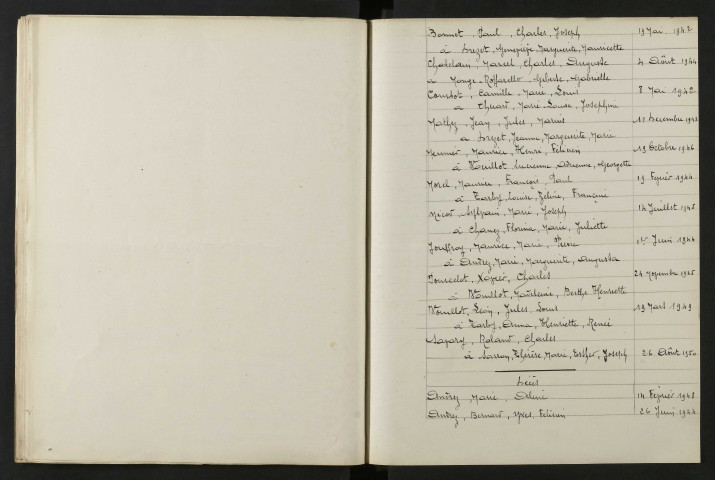 Bonnet, Paul, Charles, Joseph 19 Mai 1942
à Drezet, Geneviève, Marguerite, Mauricette
Chatelain, Marcel, Charles, Auguste 4 Août 1944
à Monge-Roffarello, Gilberte, Gabrielle
Courtot, Camille, Marie, Louis 8 Mai 1942
à Chuard, Marie-Louise, Joséphine
Mathy, Jean, Jules, Marius 11 Décembre 1942
à Drezet, Jeanne, Marguerite, Marie
Meunier, Maurice, Henri, Félicien 19 Octobre 1946
à Vouillot, Lucienne, Adrienne, Georgette
Morel, Maurice, François, Paul 19 Février 1944
à Tarby, Louise, Zeline, Françine
Nicod, Sylvain, Marie, Joseph 14 Juillet 1945
à Chancy, Florina, Marie, Juliette
Jouffroy, Maurice, Marie, Pierre Juin 1944
à Andrey, Marie, Marguerite, Augusta
Pourcelot, Xavier, Charles 24 Novembre 1945
à Vouillot, Madeleine, Berthe, Henriette
Vouillot, Léon, Jules, Louis 19 Mars 1949
à Tarby, Anna, Henriette, Renée
Lagary, Roland, Charles
à Sarron, Thérèse, Marie, Esther, Joseph 26 Août 1950
Décès
Andrey, Marie, Aline 14 Février 1948
Andrey, Bernard, Yves, Félicien 26 Juin 1944